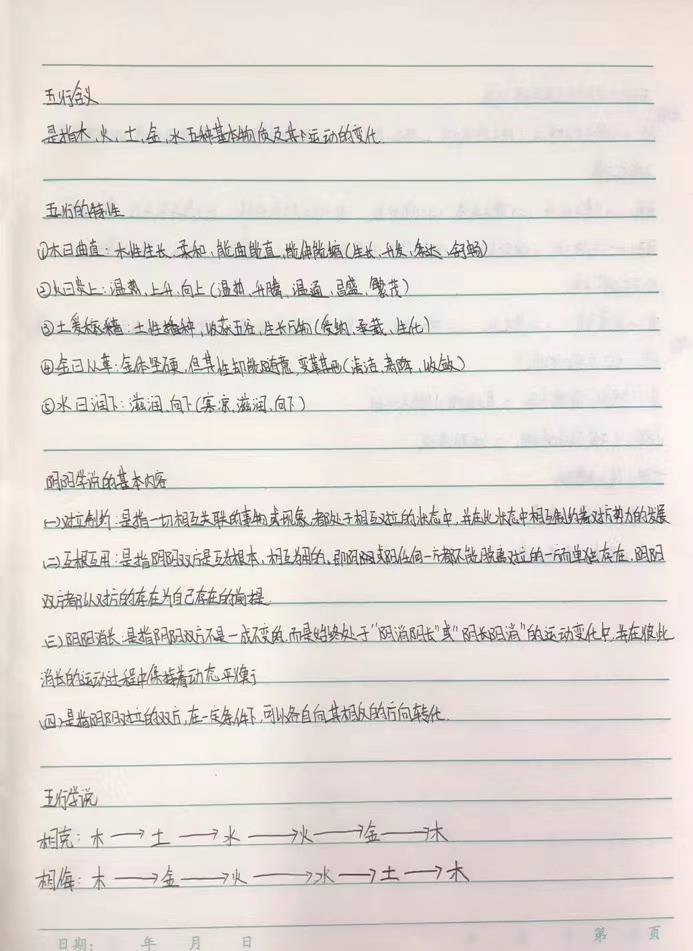 五行含义
是指木,火,土,金,水五种基本物质及其运动的变化.
五行的特性
①木曰曲直:木性生长,柔和,能曲能直,能伸能缩(生长,升发,条达,舒畅)
②火曰炎上:温热,上升,向上(温热,升腾,温通,昌盛,繁茂)
③土爰稼穑:土性播种,收获五谷,生长万物(受纳,承载,生化)
④金曰从革:金体坚硬,但其性却能随意,变革其形(清洁,肃降,收敛)
⑤水曰润下:滋润,向下(寒凉,滋润,向下)
阴阳学说的基本内容
(一)对立制约:是指一切相互关联的事物或现象,都处于相互对立的状态中,并在此状态中相互制约着对方势力的发展
(二)互根互用:是指阴阳双方是互为根本,相互为用的,即阴或阳任何一方都不能脱离对立的一方而单独存在,阴阳
双方都以对方的存在为自己存在的前提.
(三)阴阳消长:是指阴阳双方不是一成不变的,而是始终处于“阴消阳长”或“阴长阳消”的运动变化中,并在彼此
消长的运动过程中保持着动态平衡
(四)是指阴阳对立的双方,在一定条件下,可以各自向其相反的方向转化.
五行学说
相克:木→土→水→火→金→木
相侮:木→金→火→水→土→木
日期: 年 月 日 第 页